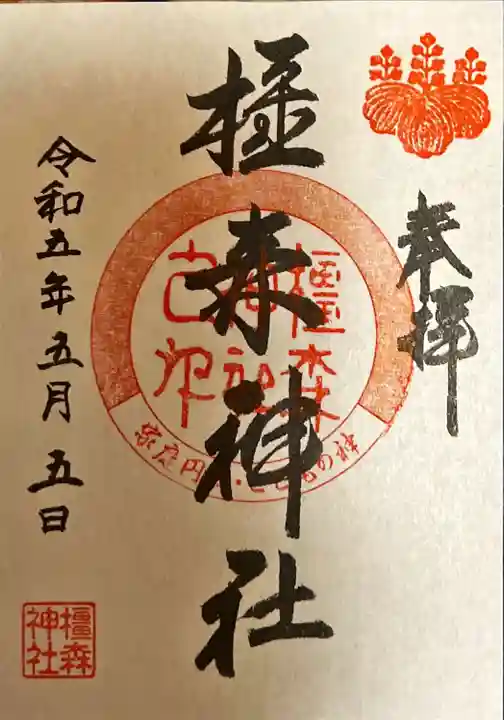 奉拝
橿森神社
橿森
神社
家庭円満・こどもの神
令和五年五月五日
橿森
神社